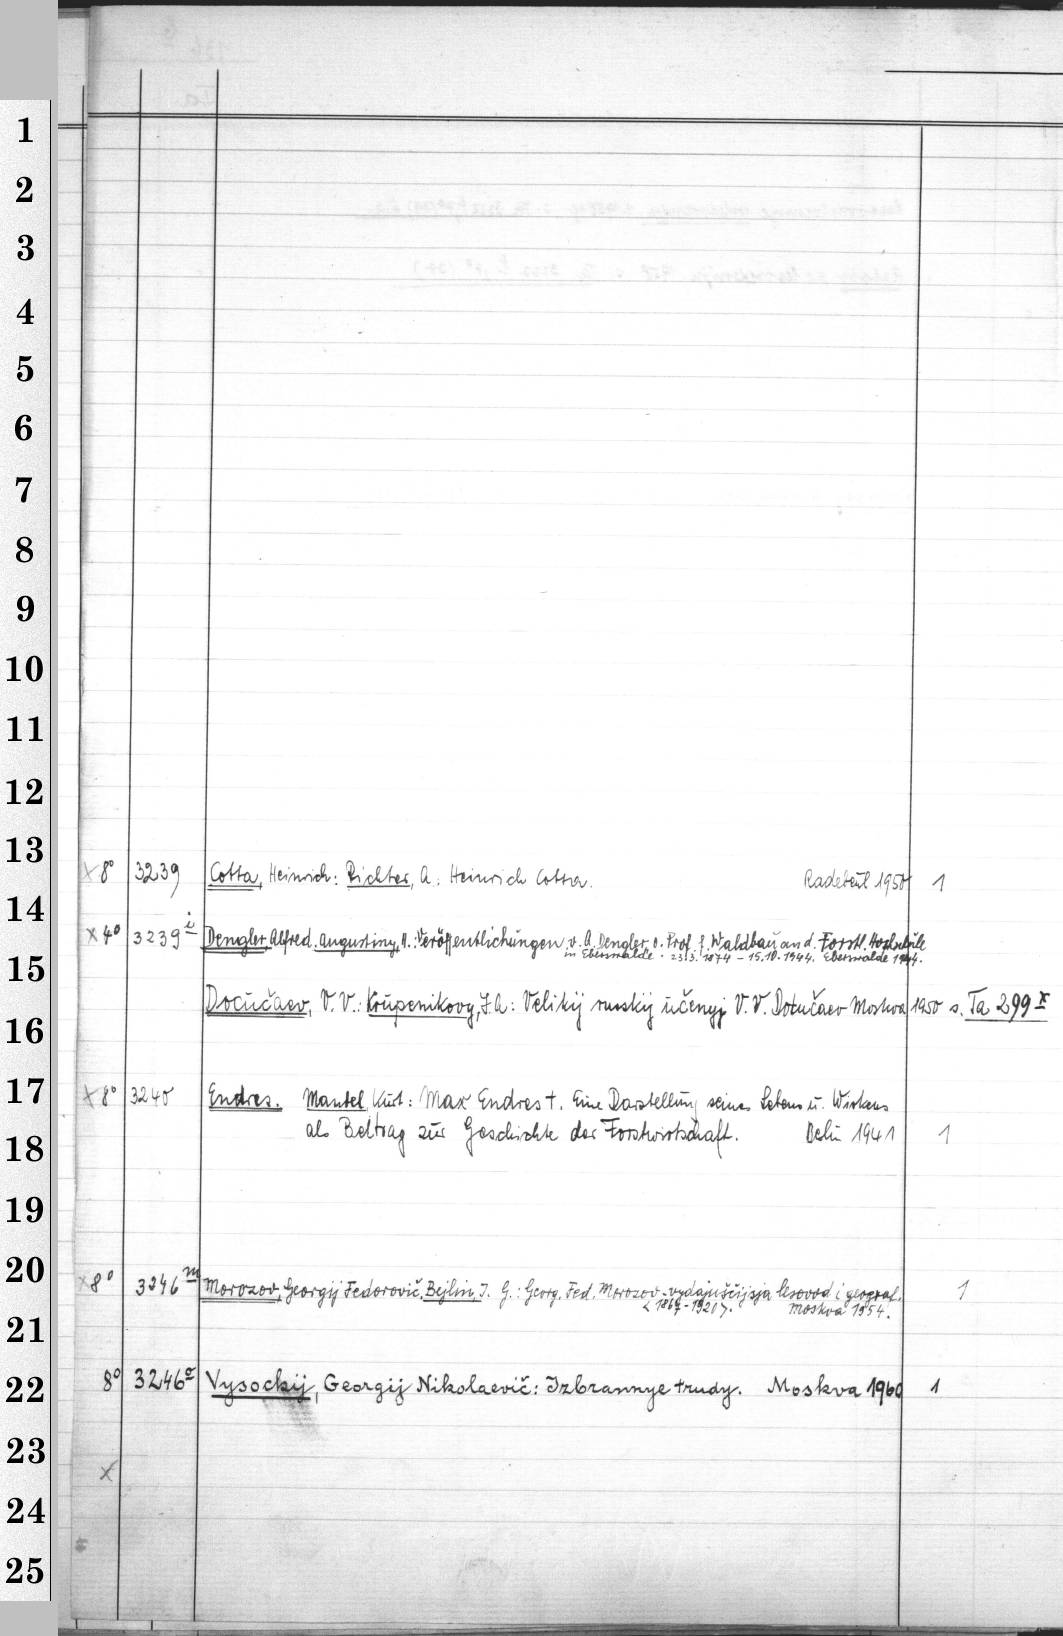 1
2
3
4
5
6
7
8
9
10
11
12
13
× 8° 3239 Cotta, Heinrich: Richter, A.: Heinrich Cotta. Radebeul 1950 1
14
× 4° 3239 i Dengler, Alfred. Augustiny, A.: Veröffentlichungen v. A. Dengler, o. Prof. f. Waldbau an d. Forstl. Hochschule
in Eberswalde. 23.3.1874 - 15.10.1944. Eberswalde 1944.
15
Docučaev, V. V.: Krupenikovy, I. A.: Velikij russkij učenyj V. V. Dotučaev Moskva 1950 s. Ta 299 x
16
17
× 8° 3240 Endres. Mantel, Kurt: Max Endres †. Eine Darstellung seines Lebens u. Wirkens
als Beitrag zur Geschichte der Forstwirtschaft. Berlin 1941 1
18
19
20
× 8° 3246 m Morozov, Georgij Fedorovič. Bejlin, I. G.: Georg. Fed. Morozov - vydajuščijsja lesovod i geograf.
< 1867-1920 >. Moskva 1954. 1
21
22
8° 3246 o Vysockij, Georgij Nikolaevič: Izbrannye trudy. Moskva 1960 1
23
×
24
25